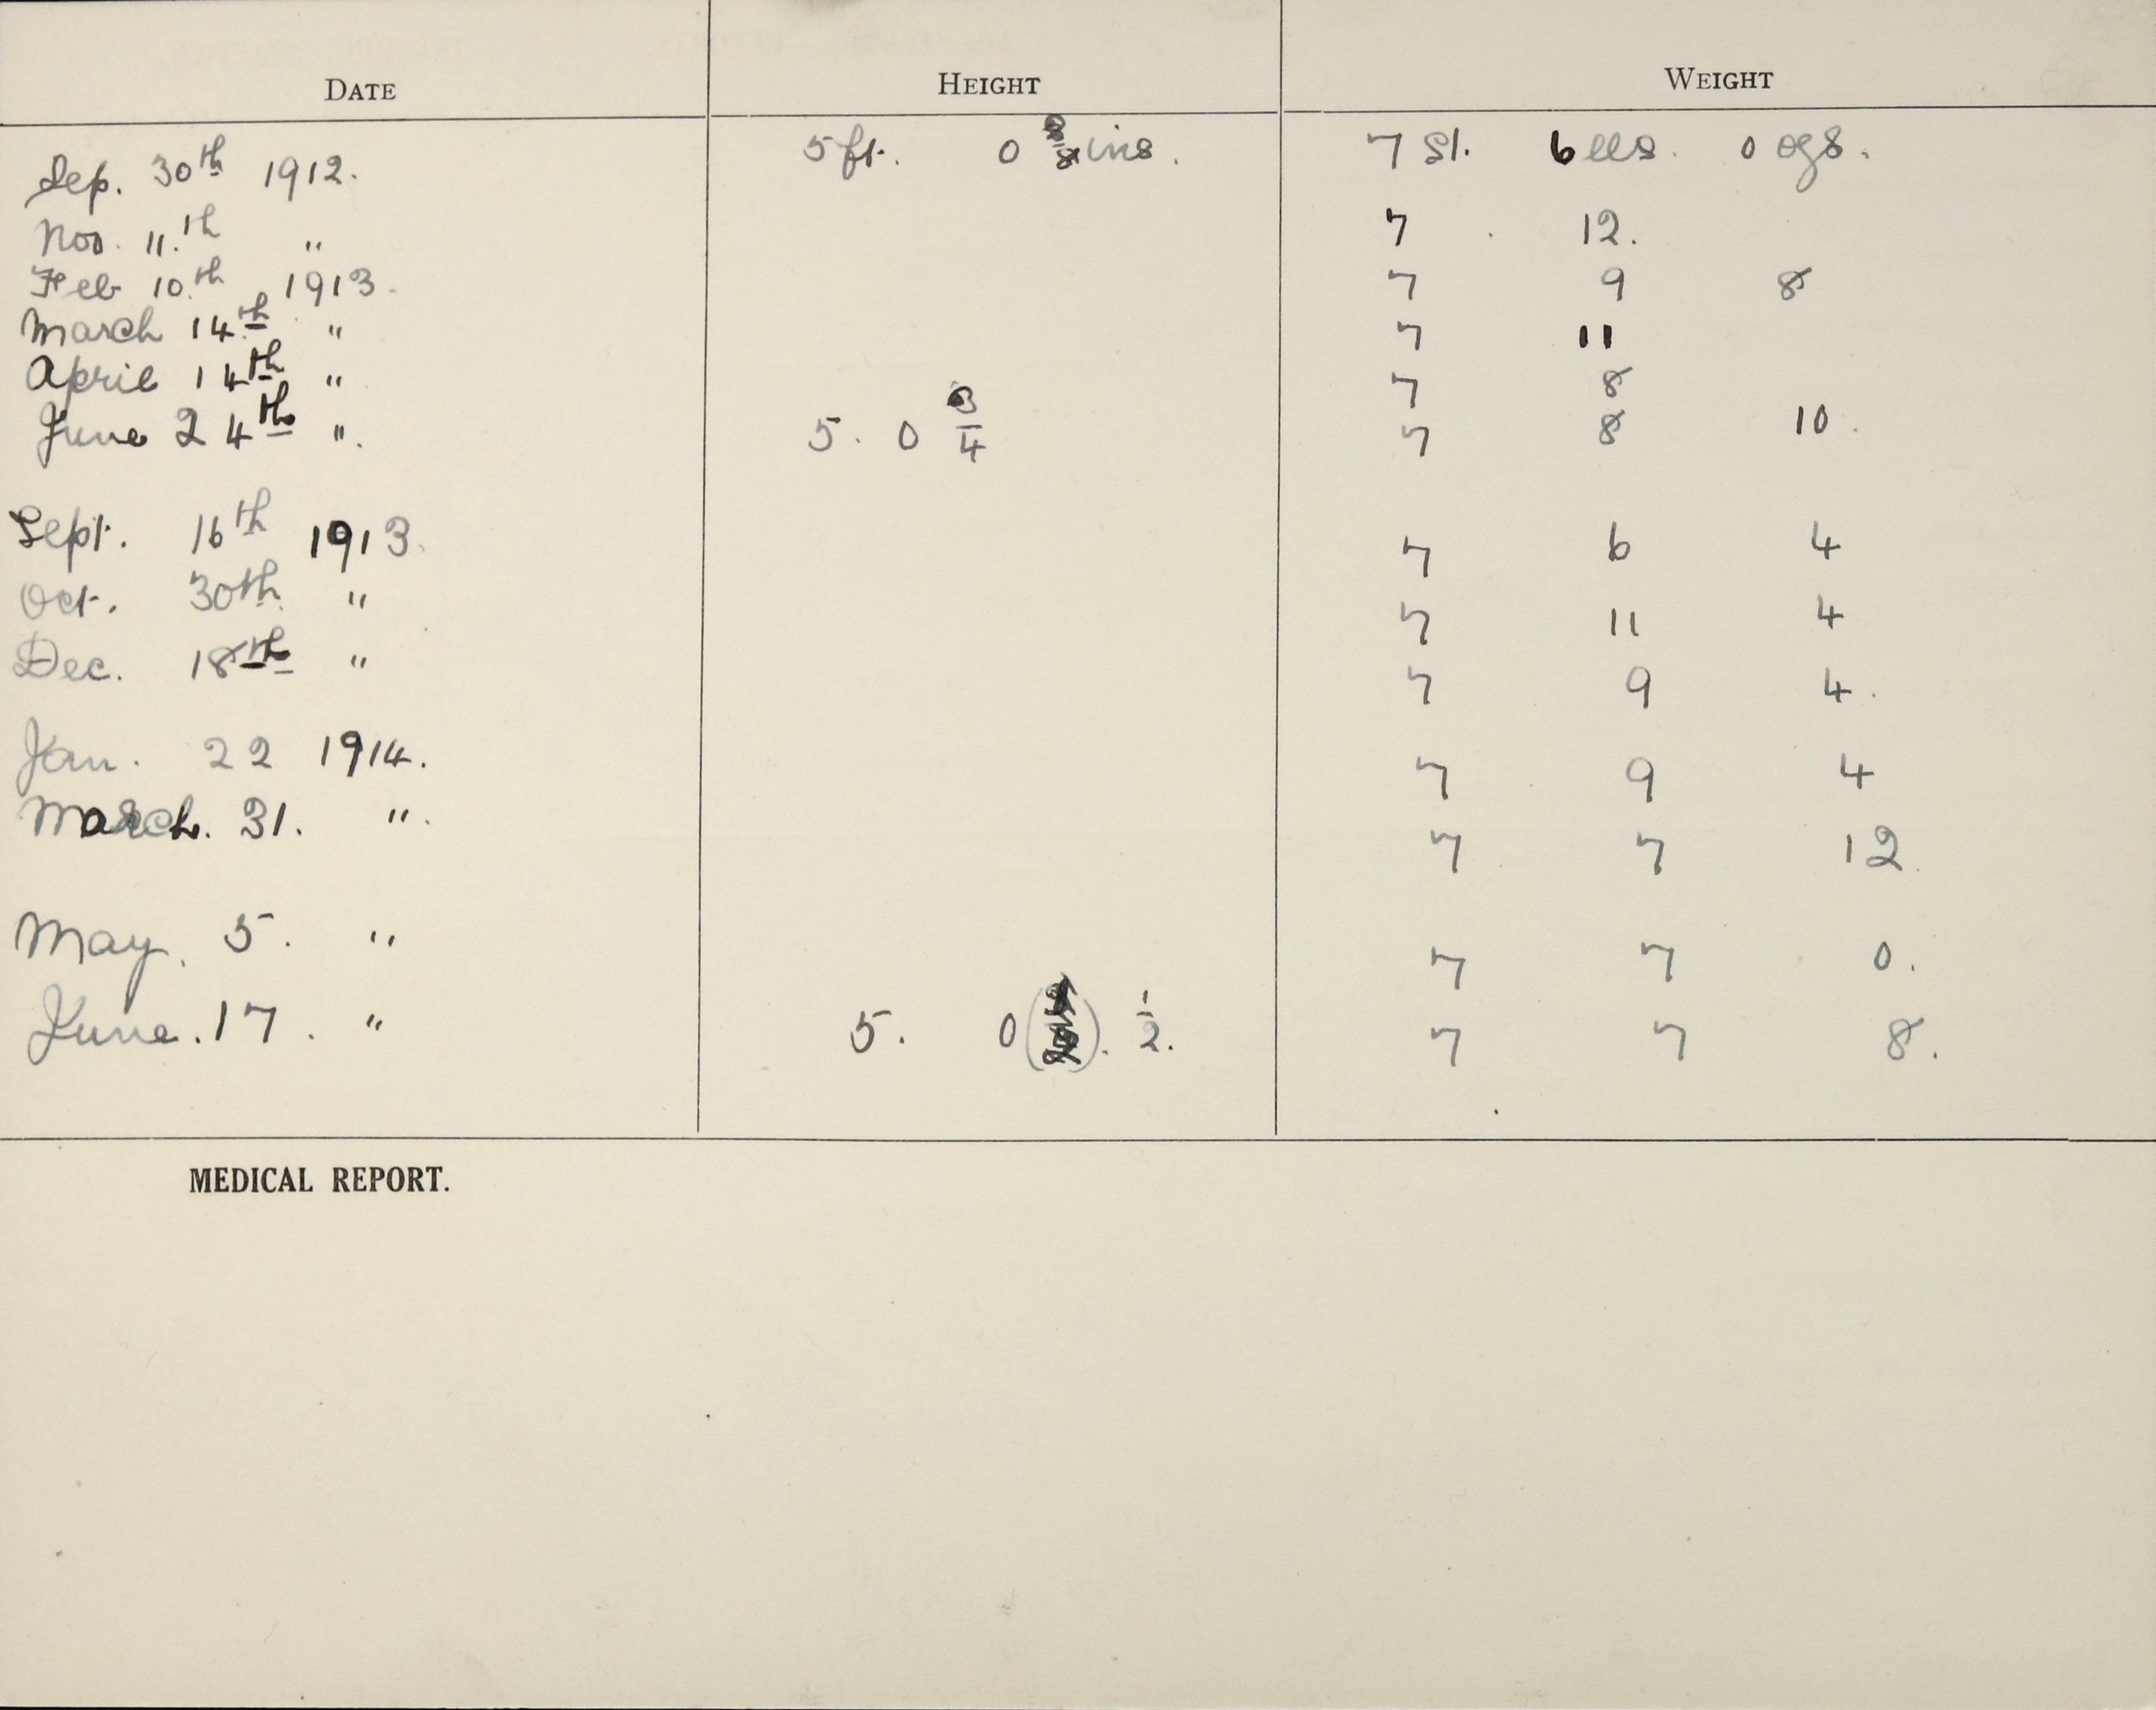 DATE HEIGHT WEIGHT
Sep. 30th 1912. 5 ft. 0 ins. 7 St. 6 lbs. 0 ozs.
Nov. 11.th " 7 12.
Feb 10.th 1913. 7 9 8
March 14th " 7 11
April 14th " 7 8
June 24th ". 5. 0 3/4 7 8 10.
Sept. 16th 1913. 7 6 4
Oct. 30th. " 7 11 4
Dec. 18th " 7 9 4.
Jan. 22 1914. 7 9 4
March. 31. ". 7 7 12.
May. 5. " 7 7 0.
June. 17. " 5. 0 ( ). 1/2. 7 7 8.
MEDICAL REPORT.